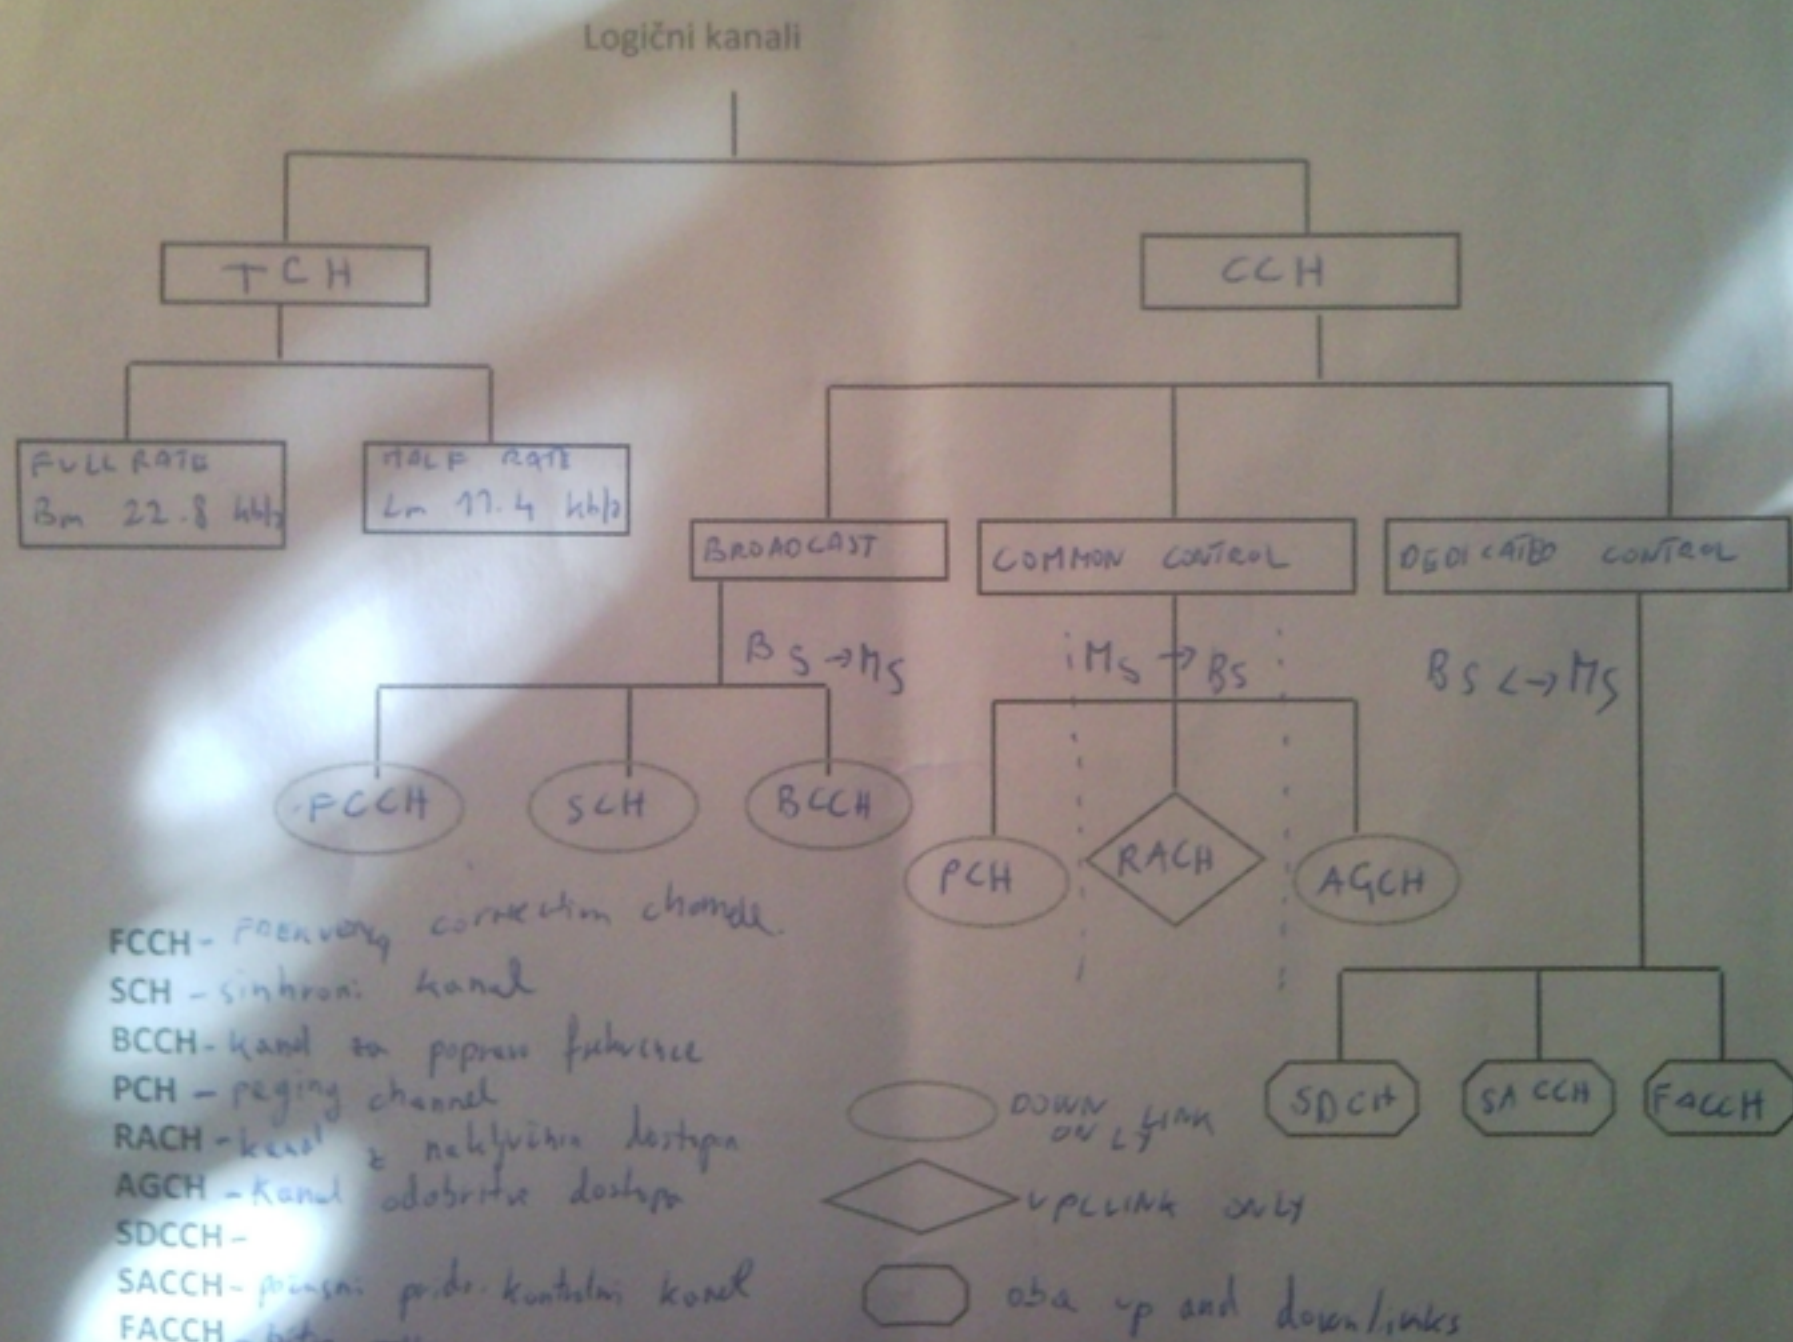 Logični kanali
TCH
CCH
FULL RATE
Bm 22.8 kb/s
HALF RATE
Lm 11.4 kb/s
BROADCAST
COMMON CONTROL
DEDICATED CONTROL
BS → MS
MS → BS
BS <-> MS
FCCH
SCH
BCCH
PCH
RACH
AGCH
SDCH
SACCH
FACCH
FCCH - correction
SCH - sinhroni kanal
BCCH - kanal za popravo frekvence
PCH - paging channel
RACH - kanal z naključnim dostopom
AGCH - Kanal odobritve dostopa
SDCCH -
SACCH - počasni pridr. kontrolni kanal
FACCH -
DOWN LINK
ONLY
UPLLINK ONLY
oba up and downlinks